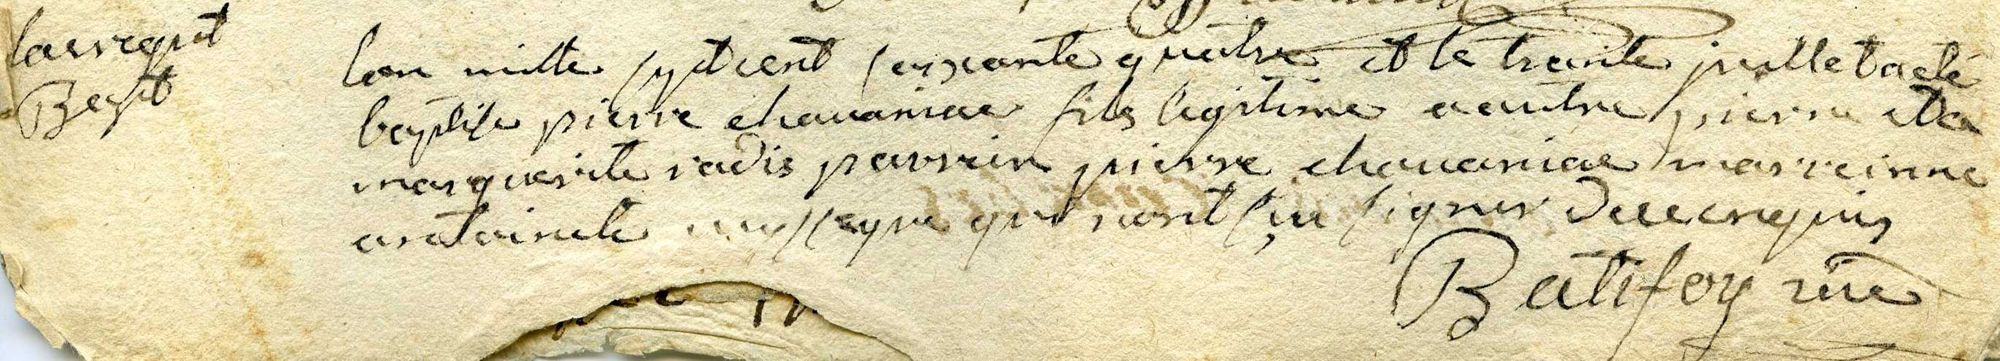 Bapt
lan mille sept cent soixante quatre et le trente juillet a eté
baptise pierre chavaniac fils legitime a autre pierre et a
marguerite radis parrein pierre chavaniac marreinne
antoinete qui nont sçu signer de ce enquis
Batifoy vic